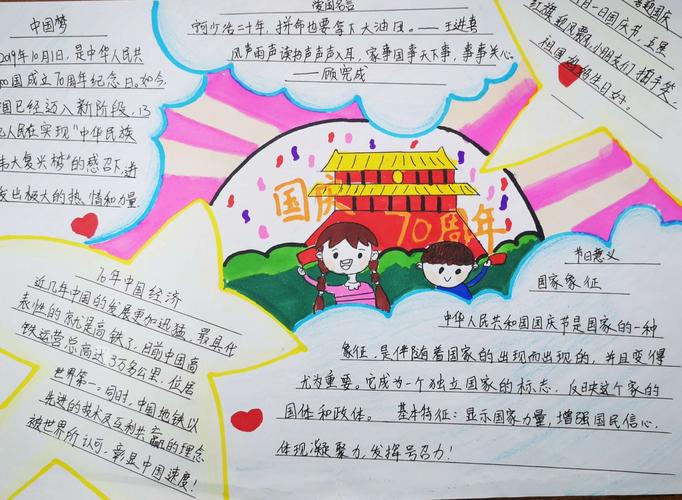 中国梦
2019年10月1日,是中华人民共
和国成立70周年纪念日。如今,
中国已经迈入新阶段,13
亿人民在实现"中华民族
伟大复兴梦"的感召下,迸
发出极大的热情和力量
宁可少活二十年,拼命也要拿下大油田。——王进喜
风声雨声读书声声声入耳,家事国事天下事,事事关心。
——顾宪成
月1日国庆节,五星
红旗飘呀飘,小朋友们拍手笑,
祖国妈妈生日好。
国庆
70周年
70年中国经济
近几年中国的发展更加迅猛,最具代
表性的就是高铁了,目前中国高
铁运营总高达3万多公里,位居
世界第一。同时,中国地铁以
先进的技术及互利共赢的理念
被世界所认可,彰显中国速度!
节日意义
国家象征
中华人民共和国国庆节是国家的一种
象征,是伴随着国家的出现而出现的,并且变得
尤为重要。它成为一个独立国家的标志,反映这个家的
国体和政体。 基本特征:显示国家力量,增强国民信心,
体现凝聚力,发挥号召力!